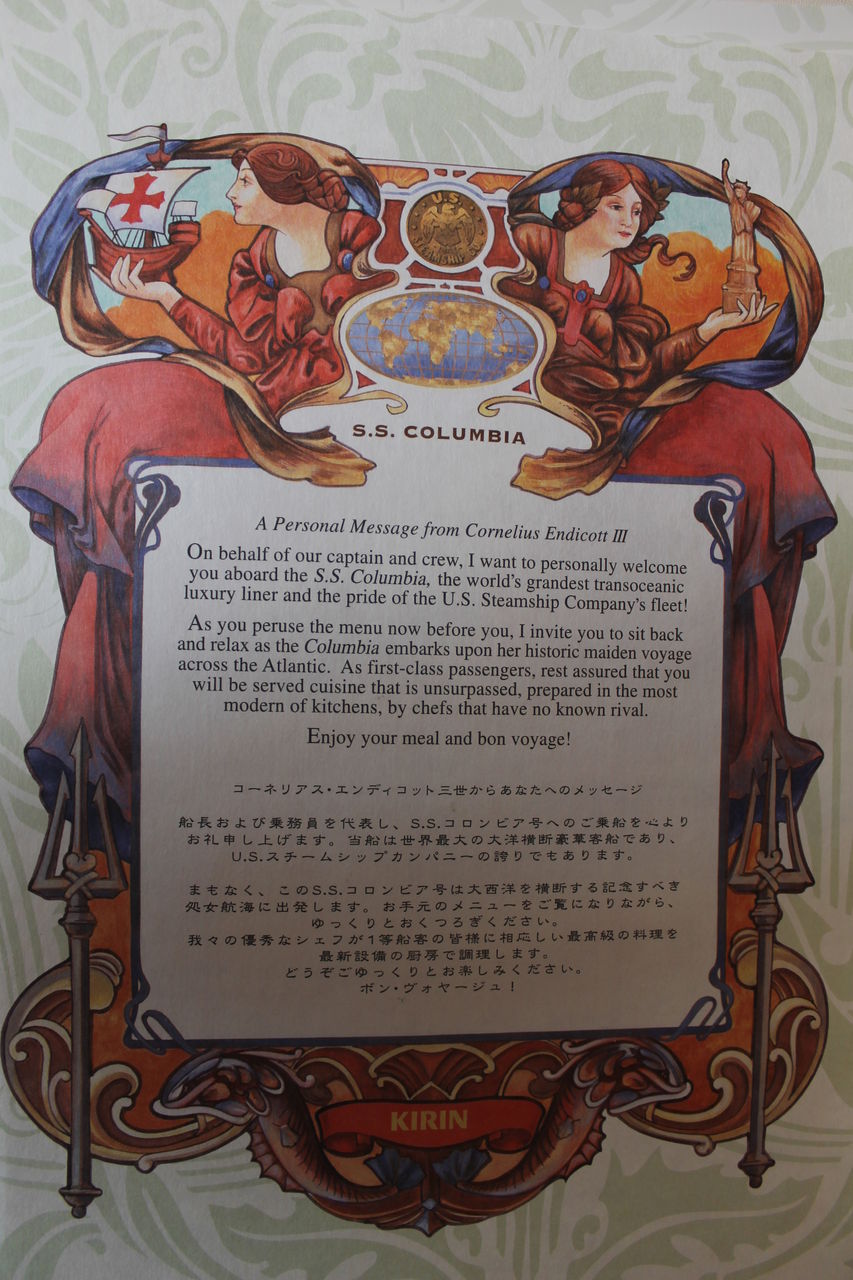 U.S.
STEAMSHIP CO
S.S. COLUMBIA
A Personal Message from Cornelius Endicott III
On behalf of our captain and crew, I want to personally welcome
you aboard the S.S. Columbia, the world's grandest transoceanic
luxury liner and the pride of the U.S. Steamship Company's fleet!
As you peruse the menu now before you, I invite you to sit back
and relax as the Columbia embarks upon her historic maiden voyage
across the Atlantic. As first-class passengers, rest assured that you
will be served cuisine that is unsurpassed, prepared in the most
modern of kitchens, by chefs that have no known rival.
Enjoy your meal and bon voyage!
コーネリアス・エンディコット三世からあなたへのメッセージ
船長および乗務員を代表し、S.S.コロンビア号へのご乗船を心より
お礼申し上げます。当船は世界最大の大洋横断豪華客船であり、
U.S.スチームシップカンパニーの誇りでもあります。
まもなく、このS.S.コロンビア号は大西洋を横断する記念すべき
処女航海に出発します。お手元のメニューをご覧になりながら、
ゆっくりとおくつろぎください。
我々の優秀なシェフが1等船客の皆様に相応しい最高級の料理を
最新設備の厨房で調理します。
どうぞごゆっくりとお楽しみください。
ボン・ヴォヤージュ!
KIRIN